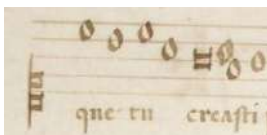 que tu creasti